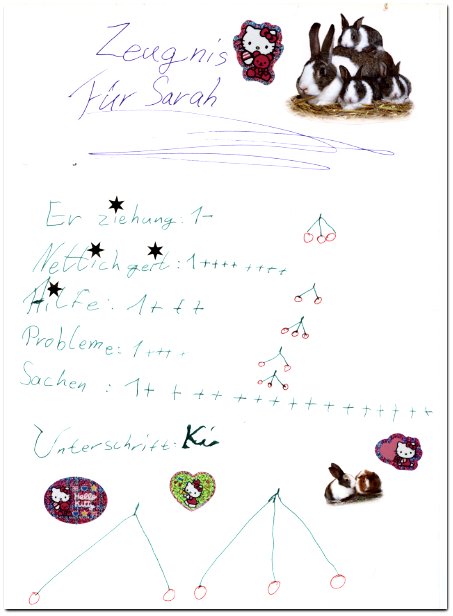 Zeugnis
Für Sarah
Erziehung: 1-
Nettlichgert: 1++++ ++++
Hilfe: 1+++
Probleme: 1++++
Sachen : 1+ + + + + + + + + + + + + + + +
Unterschrift:
Hello
Kitty